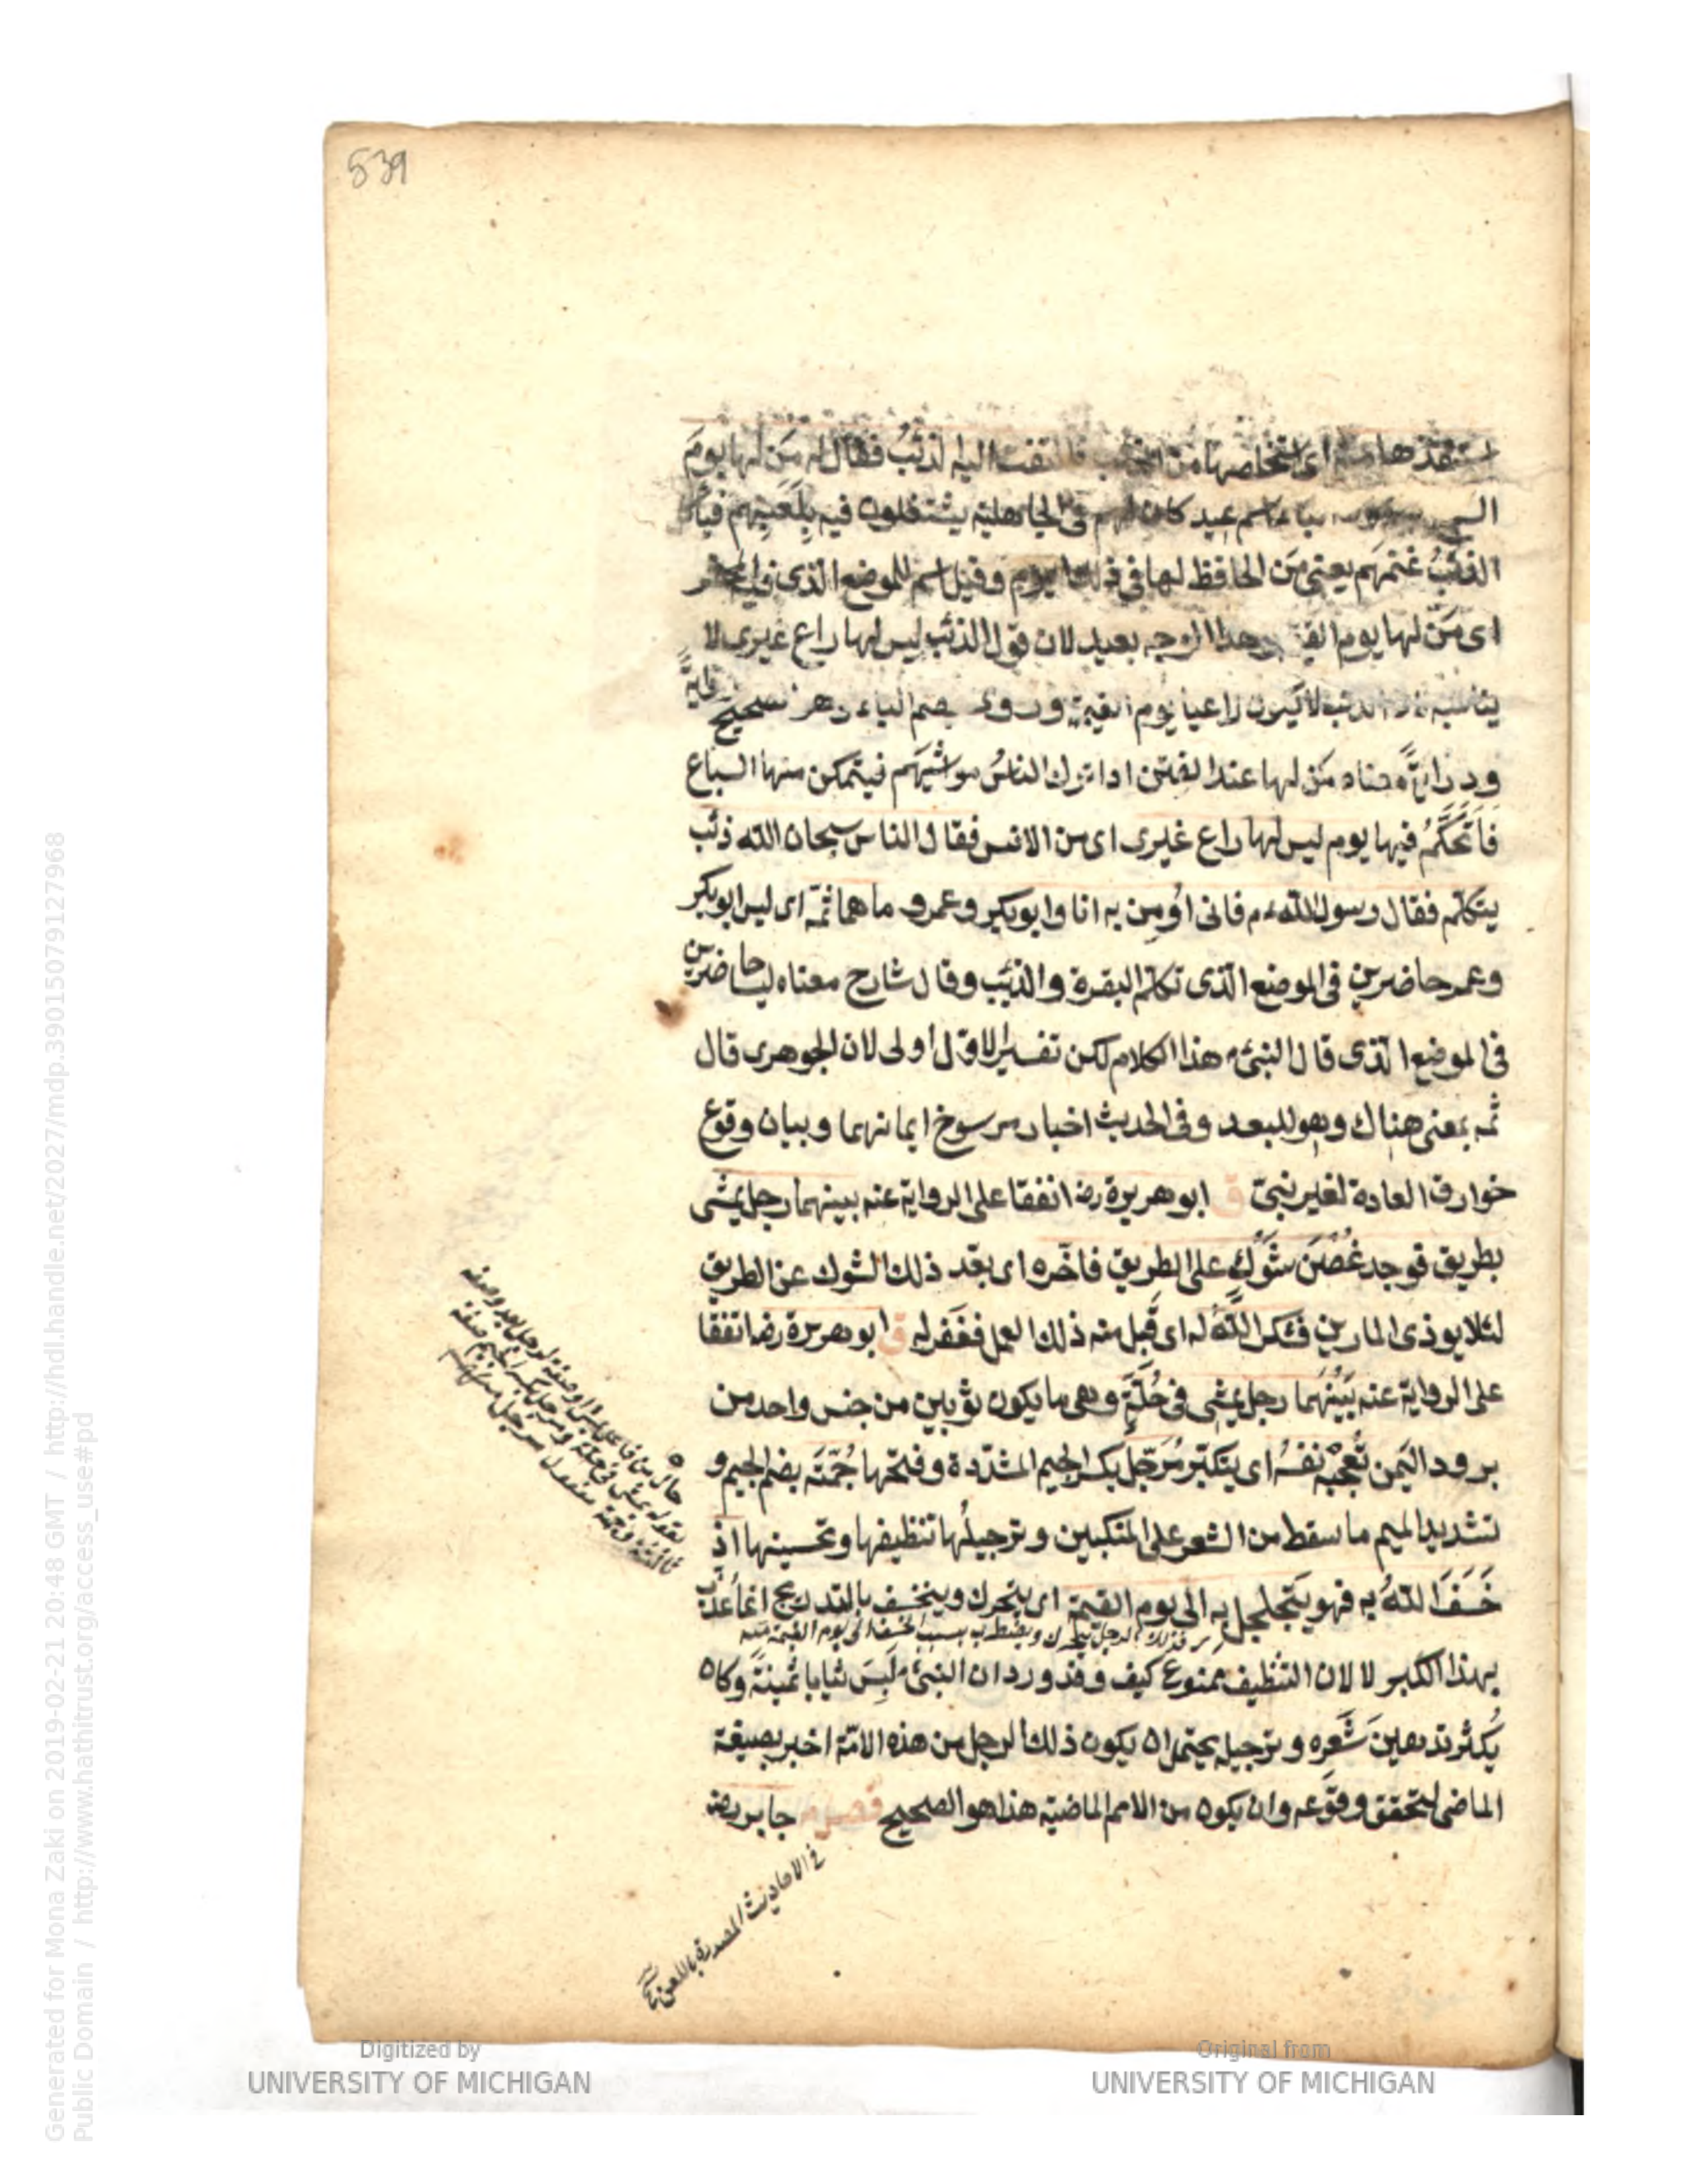 539
استنقذها منه اى استخلاصها من الذئب فالتفت اليه الذئب فقال له من لها يوم
عيد كان لهم فى الجاهلية يشتغلون فيه بلعبهم
الذئب غنمهم يعنى من الحافظ لها فى ذلك اليوم وقيل اسم للموضع الذى فيه المحشر
اى من لها يوم القيمة وهذا الوجه بعيد لان قول الذئب ليس لها راع غيرى لا
يناسبه لان الذئب لا يكون راعيا يوم القيمة وروى بضم الباء وهو صحيح رواية
ودراية معناه من لها عند الفتن اذا ترك الناس مواشيهم فيتمكن منها السباع
فأتحكم فيها يوم ليس لها راع غيرى اى من الانس فقال الناس سبحان الله ذئب
يتكلم فقال رسول الله ءم فانى اؤمن به انا وابوبكر وعمر و ما هما ثمة اى ليس ابوبكر
وعمر حاضرين فى الموضع الذى تكلم البقرة والذئب وقال شارح معناه ليسا حاضرين
فى الموضع الذى قال النبى م هذا الكلام لكن تفسير الاول اولى لان الجوهرى قال
ثمه بمعنى هناك وهو للبعد وفى الحديث اخبار برسوخ ايمانهما وبيان وقوع
خوارق العادة لغير نبى ق ابو هريرة رضه اتفقا على الرواية عنه بينهما رجل يمشى
بطريق فوجد غصن شوك على الطريق فاخره اى بعد ذلك الشوك عن الطريق
لئلا يوذى المارين فشكر الله له اى قبل منه ذلك العمل فغفر له ق ابو هريرة رضه اتفقا
على الرواية عنه بينهما رجل يمشى فى حلة وهى ما يكون ثوبين من جنس واحد من
برود اليمن تعجبه نفسه اى يتكبر مرجل بكسر الجيم المشددة وفتحها جمته بضم الجيم و
تشديد الميم ما سقط من الشعر على المنكبين وترجيلها تنظيفها وتحسينها اذ
خسف الله به فهو يتجلجل به الى يوم القيمة اى يتحرك وينخسف بالتدريج انما عذب
فذلك الرجل يتحرك ويضطرب بسبب الخسف الى يوم القيمة منه
بهذا الكبر لا لان التنظيف ممنوع كيف وقد ورد ان النبى م لبس ثيابا ثمينة وكان
يكثر تدهين شعره وترجيله يحتمل ان يكون ذلك الرجل من هذه الامة اخبر بصيغة
الماضى لتحقق وقوعه وان يكون من الامم الماضية هذا هو الصحيح فصل جابر رضه
فى الاحاديث المصدرة باللعن
Generated for Mona Zaki on 2019-02-21 20:48 GMT / http://hdl.handle.net/2027/mdp.39015079127968
Public Domain / http://www.hathitrust.org/access_use#pd
Digitized by
UNIVERSITY OF MICHIGAN
Original from
UNIVERSITY OF MICHIGAN